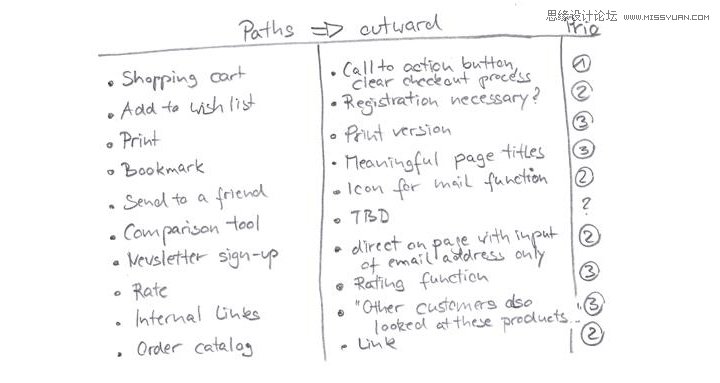 思缘设计论坛 WWW.MISSYUAN.COM
Paths ⇒ outward Prio
• Shopping cart • Call to action button, ①
clear checkout process
• Add to wish list • Registration necessary? ②
• Print • Print version ③
• Bookmark • Meaningful page titles ③
• Send to a friend • Icon for mail function ②
• Comparison tool • TBD ?
• Newsletter sign-up • direct on page with input ②
of email address only
• Rate • Rating function ③
• Internal Links • "Other customers also ③
looked at these products...
• Order catalog • Link ②